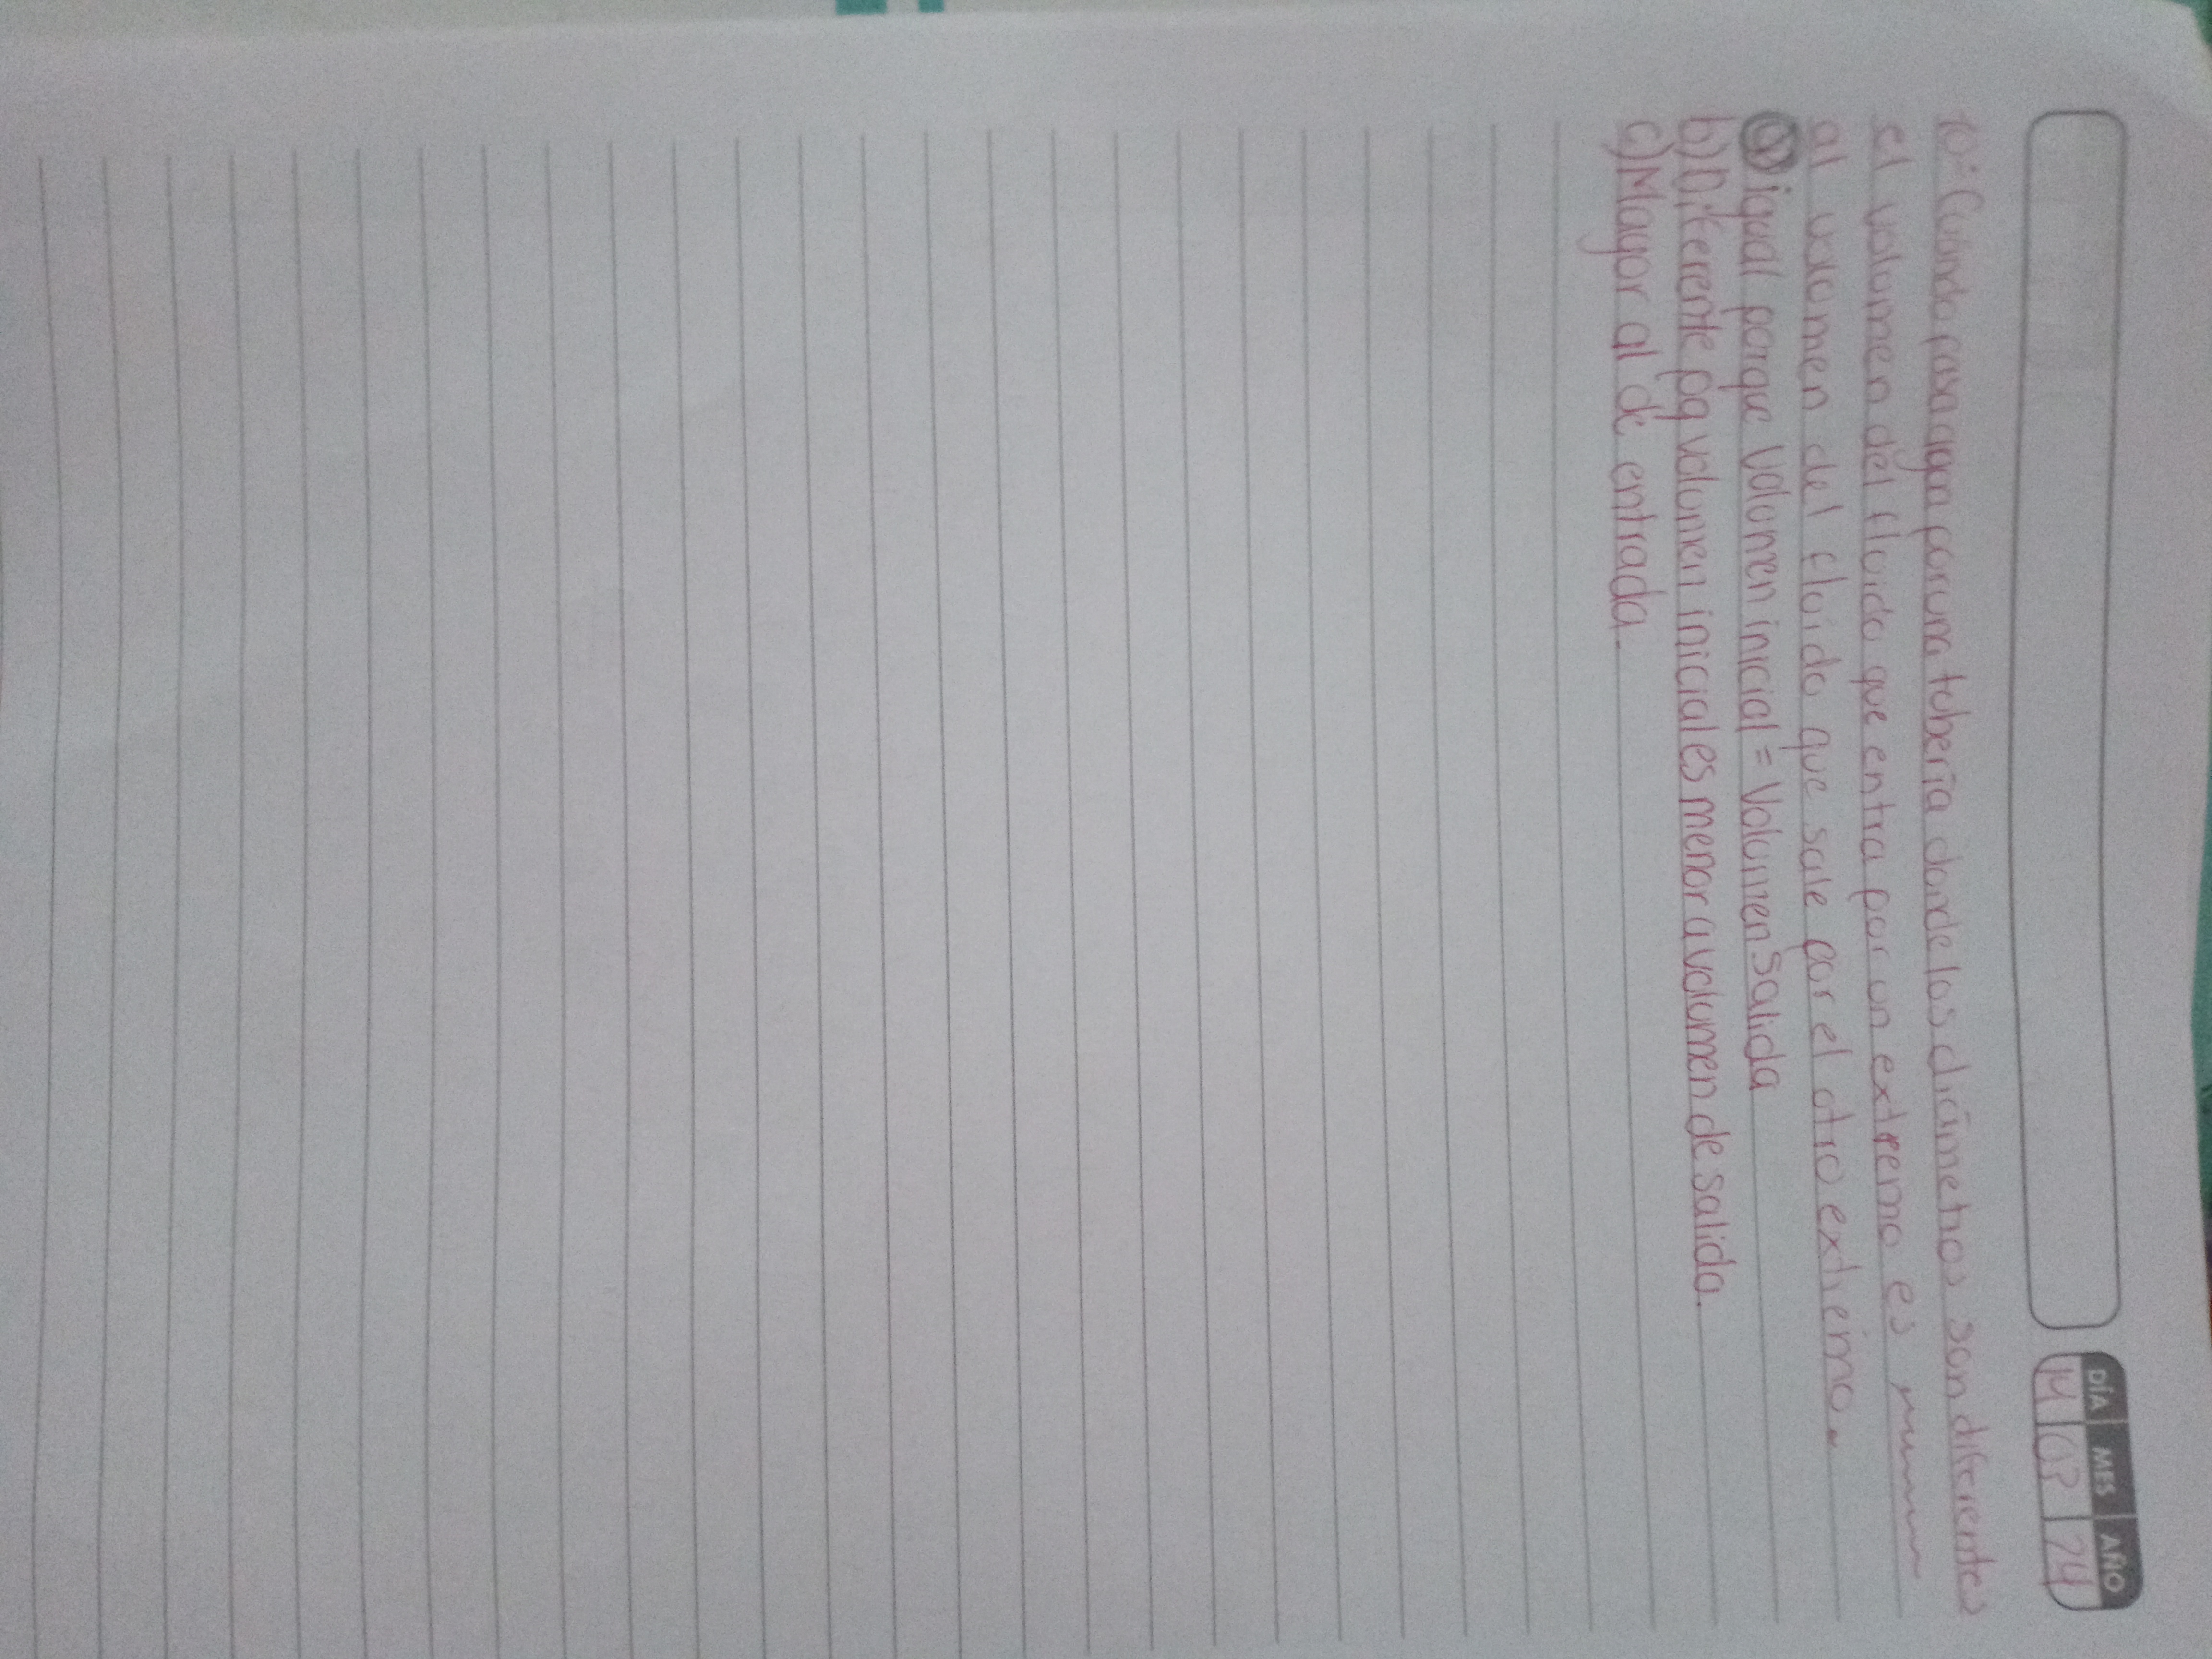 DÍA MES AÑO
14 03 24
10: Cuando pasa agua por una tubería donde los diámetros son diferentes
el volumen del fluido que entra por un extremo es
al volumen del fluido que sale por el otro extremo.
a) igual porque volumen inicial = Volumen Salida
b) Diferente pq volumen inicial es menor a volumen de salida.
c) Mayor al de entrada.